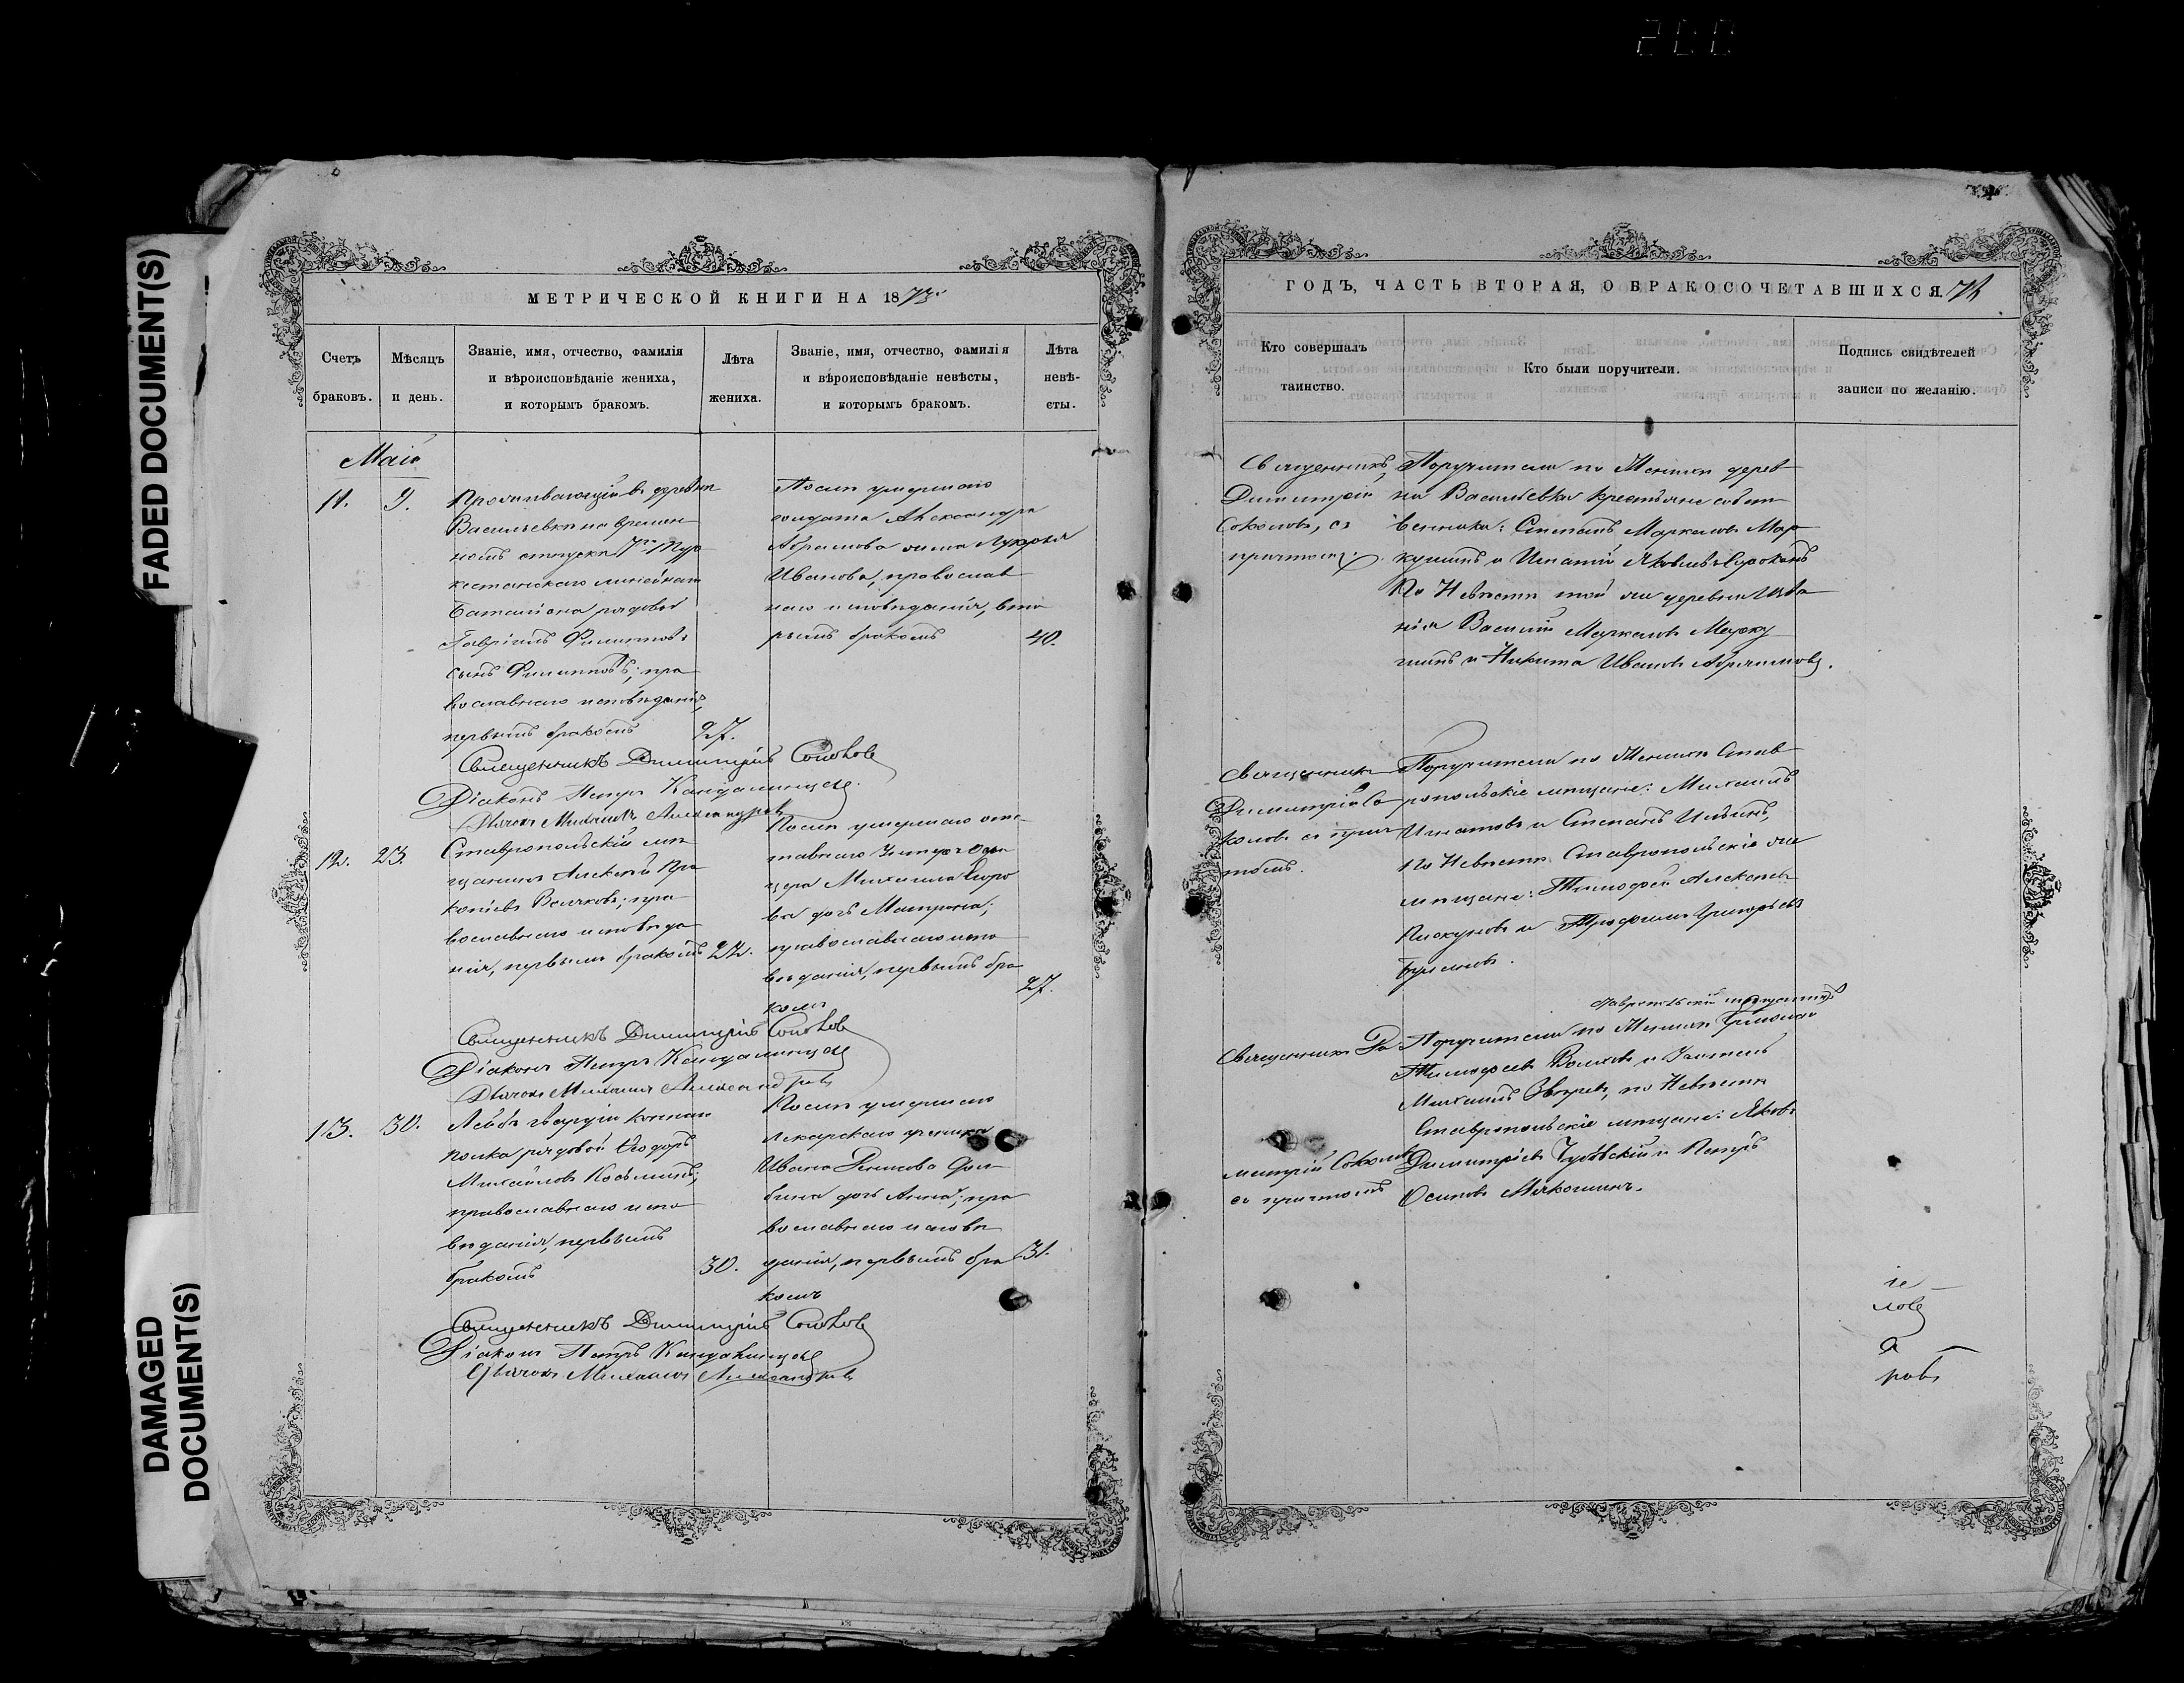 200
FADED DOCUMENT(S)
DAMAGED
DOCUMENT(S)
МЕТРИЧЕСКОЙ КНИГИ НА 1873.
Счетъ
браковъ.
Мѣсяцъ
и день.
Званіе, имя, отчество, фамилія
и вѣроисповѣданіе жениха,
и которымъ бракомъ.
Лѣта
жениха.
Званіе, имя, отчество, фамилія
и вѣроисповѣданіе невѣсты,
и которымъ бракомъ.
Лѣта
невѣ-
сты.
Маія
11. 9.
Проживающій въ деревнѣ
Васильевкѣ на времен
номъ отпускѣ Тур
кестанскаго линейнаго
баталіона рядовой
Гавріилъ Филипповъ
сынъ Филипповъ; пра
вославнаго исповѣданія,
первымъ бракомъ
27.
Послѣ умершаго
солдата Александра
Абрамова жена
Иванова, православ
наго исповѣданія, вто
рымъ бракомъ
40.
Священникъ Димитрій Соколовъ
Діаконъ Петръ
Дьячокъ Михаилъ Александровъ
12. 23.
Ставропольскій мѣ
щанинъ Алексѣй Про
копіевъ; пра
вославнаго исповѣда
нія, первымъ бракомъ
22.
Послѣ умершаго отс
тавнаго Унтеръ Офи
цера Михаила
дочь Матрона;
православнаго испо
вѣданія, первымъ бра
комъ
27.
Священникъ Димитрій Соколовъ
Діаконъ Петръ
Дьячокъ Михаилъ Александровъ
13. 30.
Лейбъ гвардіи коннаго
полка рядовой Ѳеодоръ
Михайловъ Косьминъ;
православнаго испо
вѣданія, первымъ
бракомъ
30.
Послѣ умершаго
лекарскаго ученика
Ивана Денисова
дочь Анна; пра
вославнаго исповѣ
данія, первымъ бра
комъ
31.
Священникъ Димитрій Соколовъ
Діаконъ Петръ
Дьячокъ Михаилъ Александровъ
ГОДЪ, ЧАСТЬ ВТОРАЯ, О БРАКОСОЧЕТАВШИХСЯ.
Кто совершалъ
таинство.
Кто были поручители.
Подпись свидѣтелей
записи по желанію.
Священникъ
Димитрій
Соколовъ, съ
причтомъ.
Поручители по Женихѣ дерев
ни Васильевки крестьяне собст
венники: Степанъ Маркеловъ Мар
кушинъ и Игнатій Яковлевъ
По Невѣстѣ той же деревни
Василій Маркеловъ Марку
шинъ и Никита Ивановъ Абрамовъ.
Священникъ
Димитрій Со
коловъ съ прич
томъ.
Поручители по Женихѣ Став
ропольскіе мѣщане: Михаилъ
Игнатовъ и Степанъ Ильинъ,
по Невѣстѣ Ставропольскіе же
мѣщане: Тимофей Алексѣевъ
Пискуновъ и Трофимъ Григорьевъ
Ставропольскій
Священникъ Ди
митрій Соколовъ
съ причтомъ
Поручители по Женихѣ
Тимофеевъ Волковъ и Учитель
Михаилъ Звѣревъ, по Невѣстѣ
Ставропольскіе мѣщане: Яковъ
Димитріевъ и Петръ
Осиповъ
ловъ
ровъ